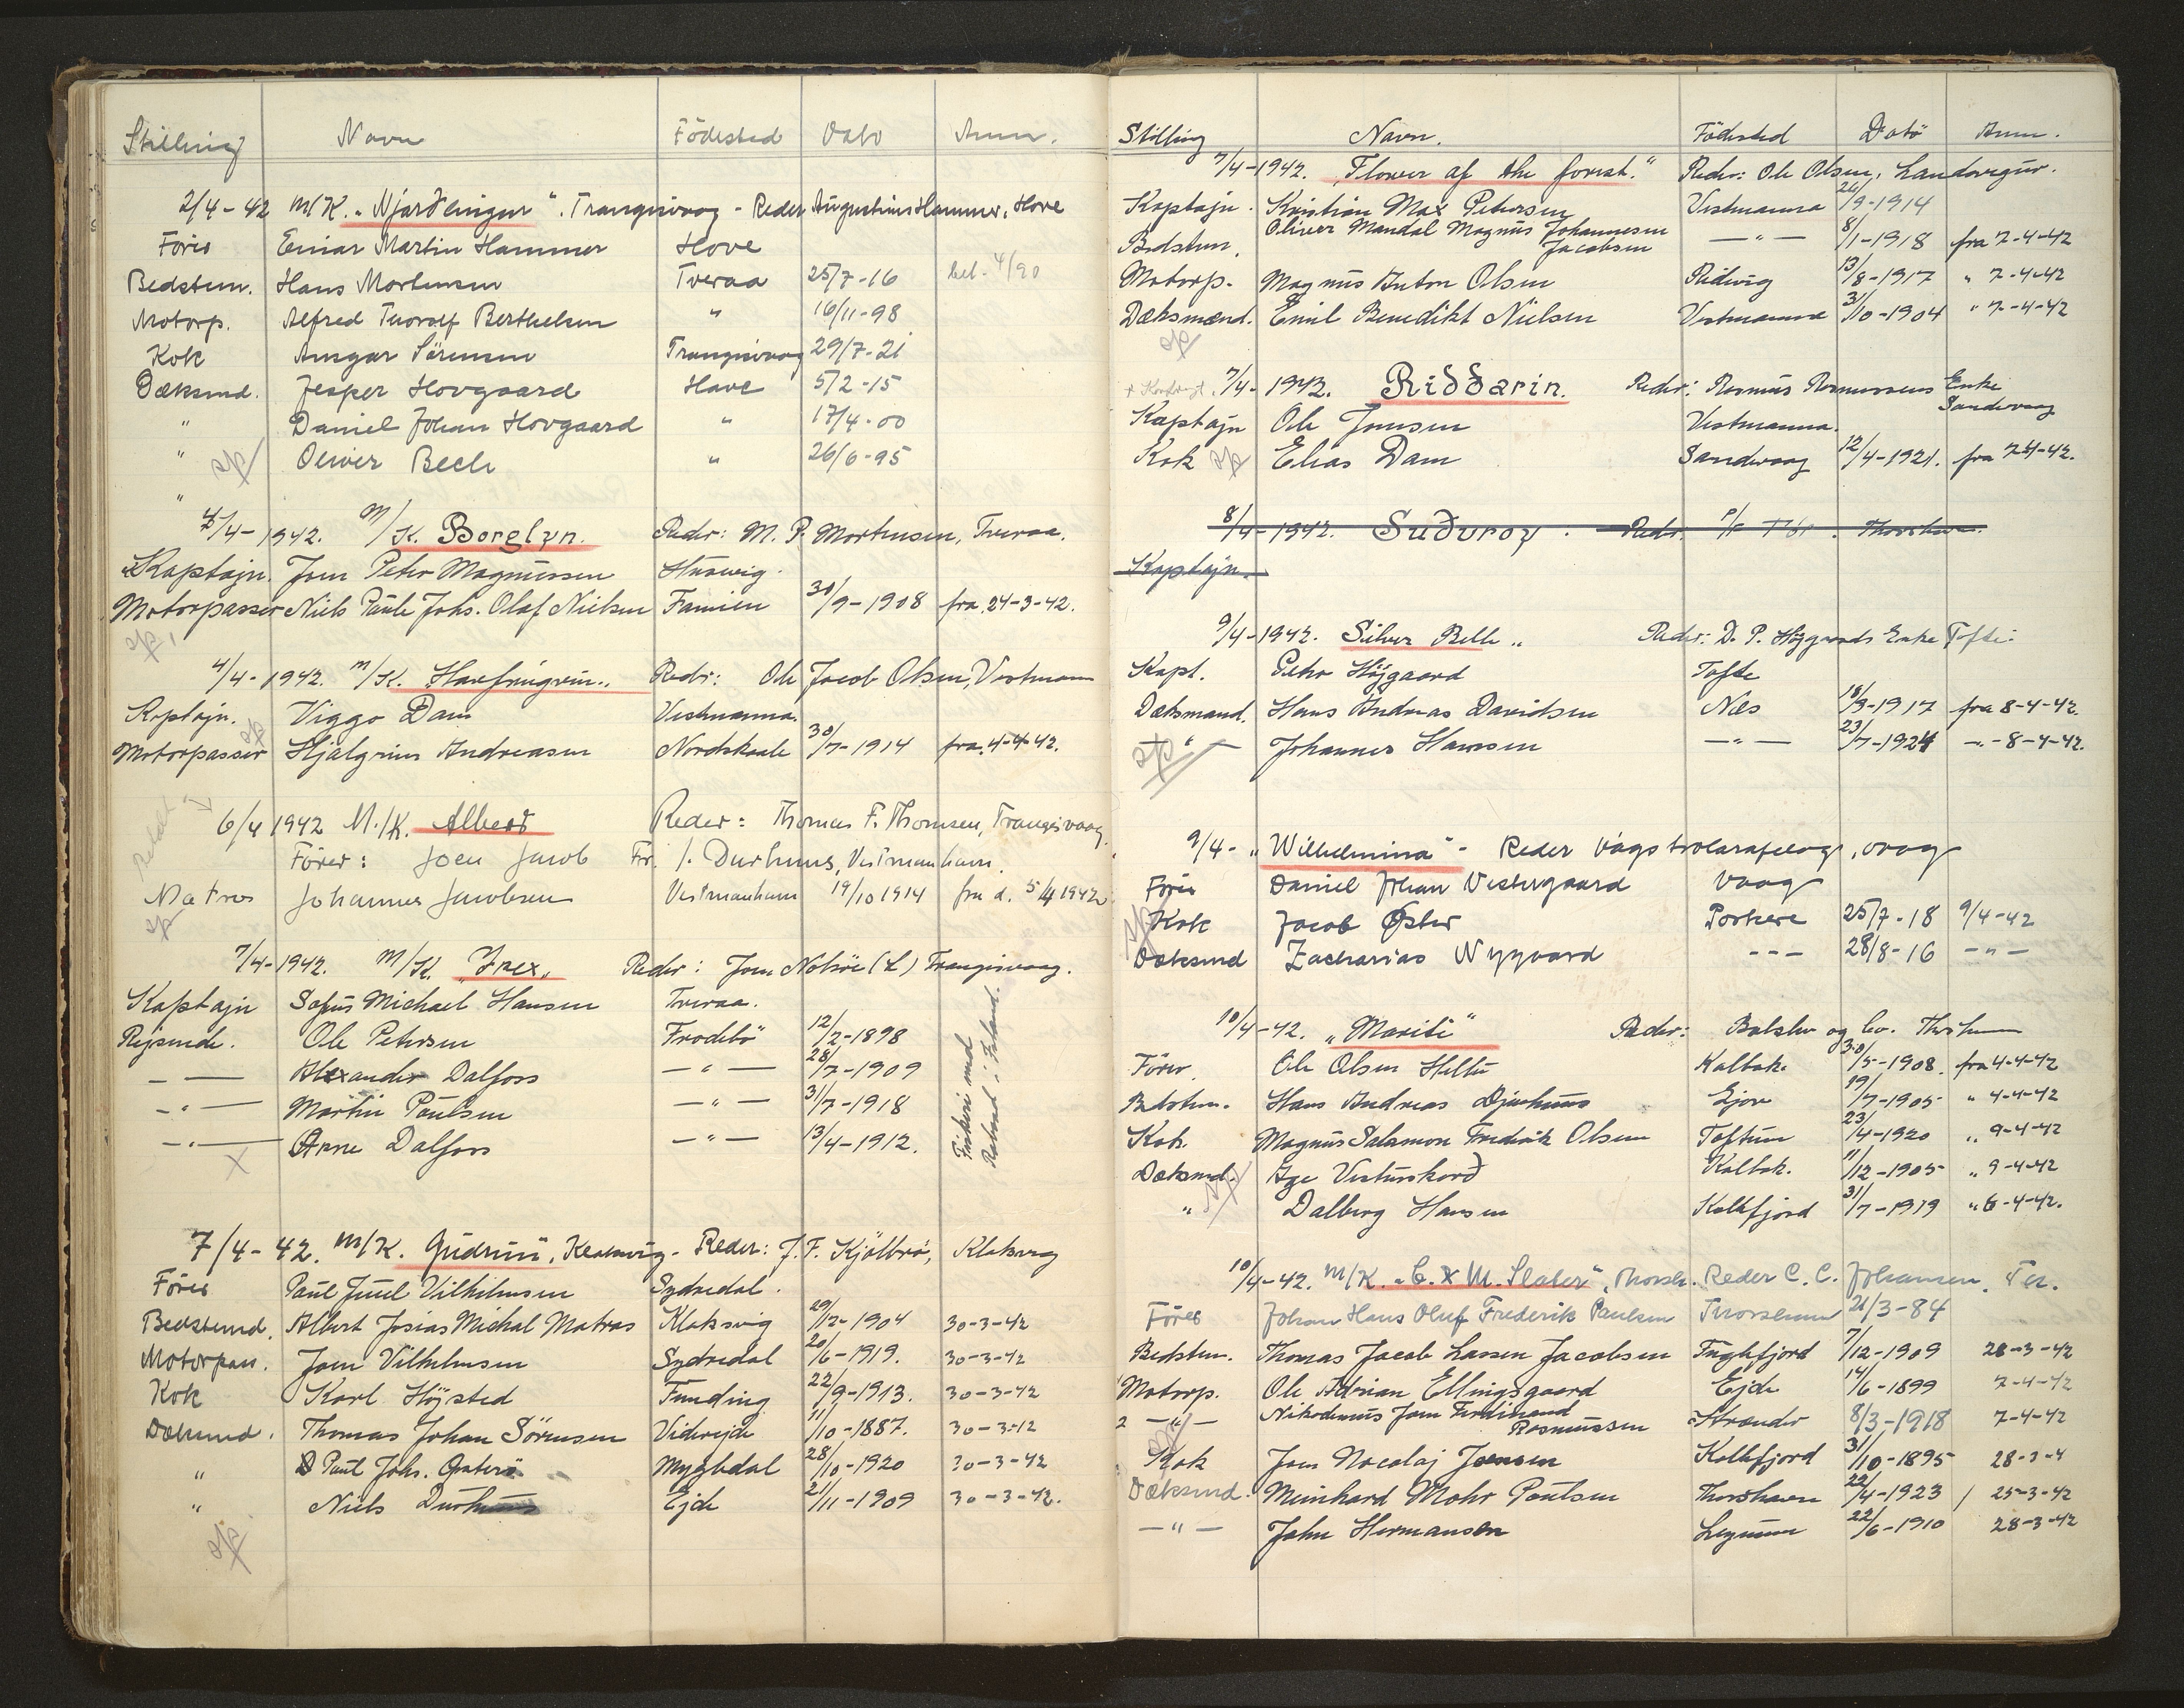 Stilling Navn Födested Dato Anm.
2/4-42 M/K. "Njardlingur". Trangisvaag - Reder Augustinus Hammer, Hove
Förer Einar Martin Hammer Hove
Bedstem. Hans Mortensen Tveraa 25/7-16
Motorp. Alfred Thorolf Berthelsen " 16/11-98
Kok Ansgar Sörensen Trangisvaag 29/7-21
Dæksmd. Jesper Hovgaard Hove 5/2-15
" Daniel Johan Hovgaard " 17/4-00
" Oliver Bech " 26/6-95
"
4/4-1942. M/K. Borglyn. Reder: M. P. Mortensen, Tveraa.
Kaptajn. Joen Peter Magnussen Husevig.
Motorpasser Niels Paule Johs. Olaf Nielsen Famien 30/9-1908 fra 24-3-42.
4/4-1942. M/K. Havfrugvin.. Reder: Ole Jacob Olsen, Vestmann
Kaptajn. Viggo Dam Vestmanna.
Motorpasser Hjalgrim Andreasen Nordskaale 30/7-1914 fra 4-4-42.
6/4 1942 M./K. Albert Reder: Thomas F. Thomsen, Trangisvaag.
Förer: Joen Jacob Fr. J. Durhuus, Vestmanhavn.
Matros Johannes Jacobsen Vestmanhavn 19/10 1914 fra d. 5/4 1942
7/4-1942. M/K. "Irex" Reder: Joen Nolsöe (L) Trangisvaag.
Kaptajn Sofus Michael Hansen Tveraa.
Rejsende. Ole Petersen Frodebö 12/2-1898
— — Alexander Dalfoss — " — 28/7-1909
— " — Martin Paulsen — " — 31/7-1918
— " — Arne Dalfoss — " — 13/4-1912.
Fiskeri med
Robaad i Island.
7/4-42. M/K. Gudrun, Klaksvig - Reder: J. F. Kjölbro, Klaksvig
Förer Paul Juul Vilhelmsen Sydredal.
Bedstemd. Albert Josias Michal Matras Klaksvig 29/12-1904 30-3-42
Motorpas. Joen Vilhelmsen Sydredal 20/6-1919. 30-3-42
Kok Karl Höjsted Funding 22/9-1913. 30-3-42
Dæksmd. Thomas Johan Sörensen Viderejde 11/10-1887. 30-3-42
" Paul Johs. Østerö Mygledal 28/10-1920 30-3-42
" Niels Durhuus Ejde 21/11-1909 30-3-42.
Stilling Navn. Födested Datö Anm.
7/4-1942. "Flower of the forest." Reder: Ole Olsen, Sandavágur.
Kaptajn. Kristian Max Petersen Vestmanna 26/9-1914
Bedstem. Oliver Mandal Magnus Johannesen Jacobsen — " — 8/1-1918 fra 7-4-42
Motorp. Magnus Anton Olsen Ridevig 13/8-1917 " 7-4-42
Dæksmænd. Emil Benedikt Nielsen Vestmanna 3/10-1904 " 7-4-42
7/4-1942. Riddarin. Reder: Rasmus Rasmussens Enke Sandevaag
Kaptajn Ole Joensen Vestmanna.
Kok Elias Dam Sandevaag 12/4-1921. fra 7-4-42.
8/4-1942. Suðuroy. Reder. P/F Thor. Thorshavn.
Kaptajn.
9/4-1942. Silver Belle " Reder: D. P. Højgaards Enke Tofte.
Kapt. Peter Højgaard Tofte
Dæksmand. Hans Andreas Davidsen Næs 18/9-1917 fra 8-4-42.
— " — Johannes Hansen — " — 23/7-1924 — " - 8-4-42.
9/4 - "Wilhelmina" - Reder Vágs trolarafelag, Vaag
Förer Daniel Johan Vestergaard Vaag
Kok Jacob Øster Porkere 25/7-18 9/4-42
Dæksmd Zacharias Nygaard - - - 28/8-16 — " —
10/4-42. "Marite" Reder: Balslev og Co. Thorshavn
Förer. Ole Olsen Heltu Kalbak. 30/5-1908. fra 4-4-42
Bedstem. Hans Andreas Djurhuus Gjov 19/7-1905 " 4-4-42
Kok. Magnus Salamon Fredrik Olsen Toftum 23/4-1920 " 9-4-42
Dæksmd. Age Vesturskard Kalbak. 11/12-1905 " 9-4-42
" Dalberg Hansen Kolkfjord 31/7-1919 " 6-4-42.
10/4-42. M/K. "C. & M. Slater", Thorsh. Reder C. C. Johansen. Th.
Förer Johan Hans Oluf Frederik Paulsen Thorshavn 21/3-84
Bedstem. Thomas Jacob Lassen Jacobsen Fuglefjord 7/12-1909 28-3-42
Motorp. Ole Adrian Ellingsgaard Ejde 14/6-1899 7-4-42
2 — " — Nikodemus Joen Ferdinand Rasmussen Strænder 8/3-1918 7-4-42
Kok Joen Nocolaj Joensen Kolkfjord 31/10-1895 28-3-4
Dæksmd. Meinhard Mohr Poulsen Thorshavn 22/4-1923 / 25-3-42
— " — John Hermansen 22/6-1910 28-3-42